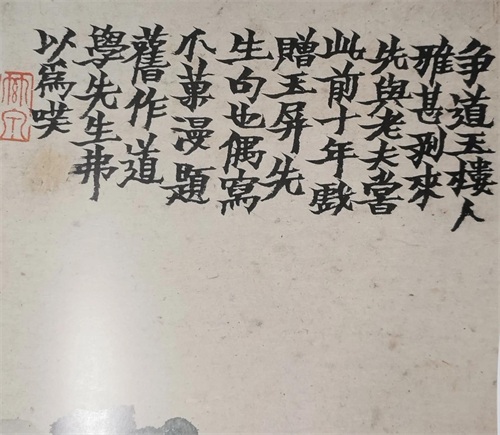 争道玉樓人
雅甚剥來
先與老夫嘗
此前十年戲
贈玉屏先
生句也偶寫
不菓漫題
舊作道
學先生弗
以為哎